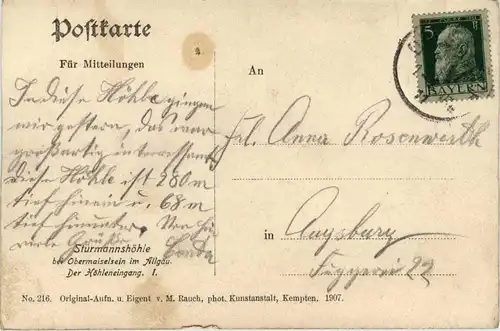 Postkarte
Für Mitteilungen
An
5 Pf
BAYERN
In diese Höhle gingen
wir gestern, das war
großartig interessant.
Diese Höhle ist 280 m
tief hinein u. 68 m
tief hinunter. Von hier
viele Grüße
Frl. Anna Rosenwirth
in Augsburg
Fuggerei 22
Sturmannshöhle
bei Obermaiselsein im Allgäu.
Der Höhleneingang. I.
No. 216. Original-Aufn. u. Eigent v. M. Rauch, phot. Kunstanstalt, Kempten. 1907.